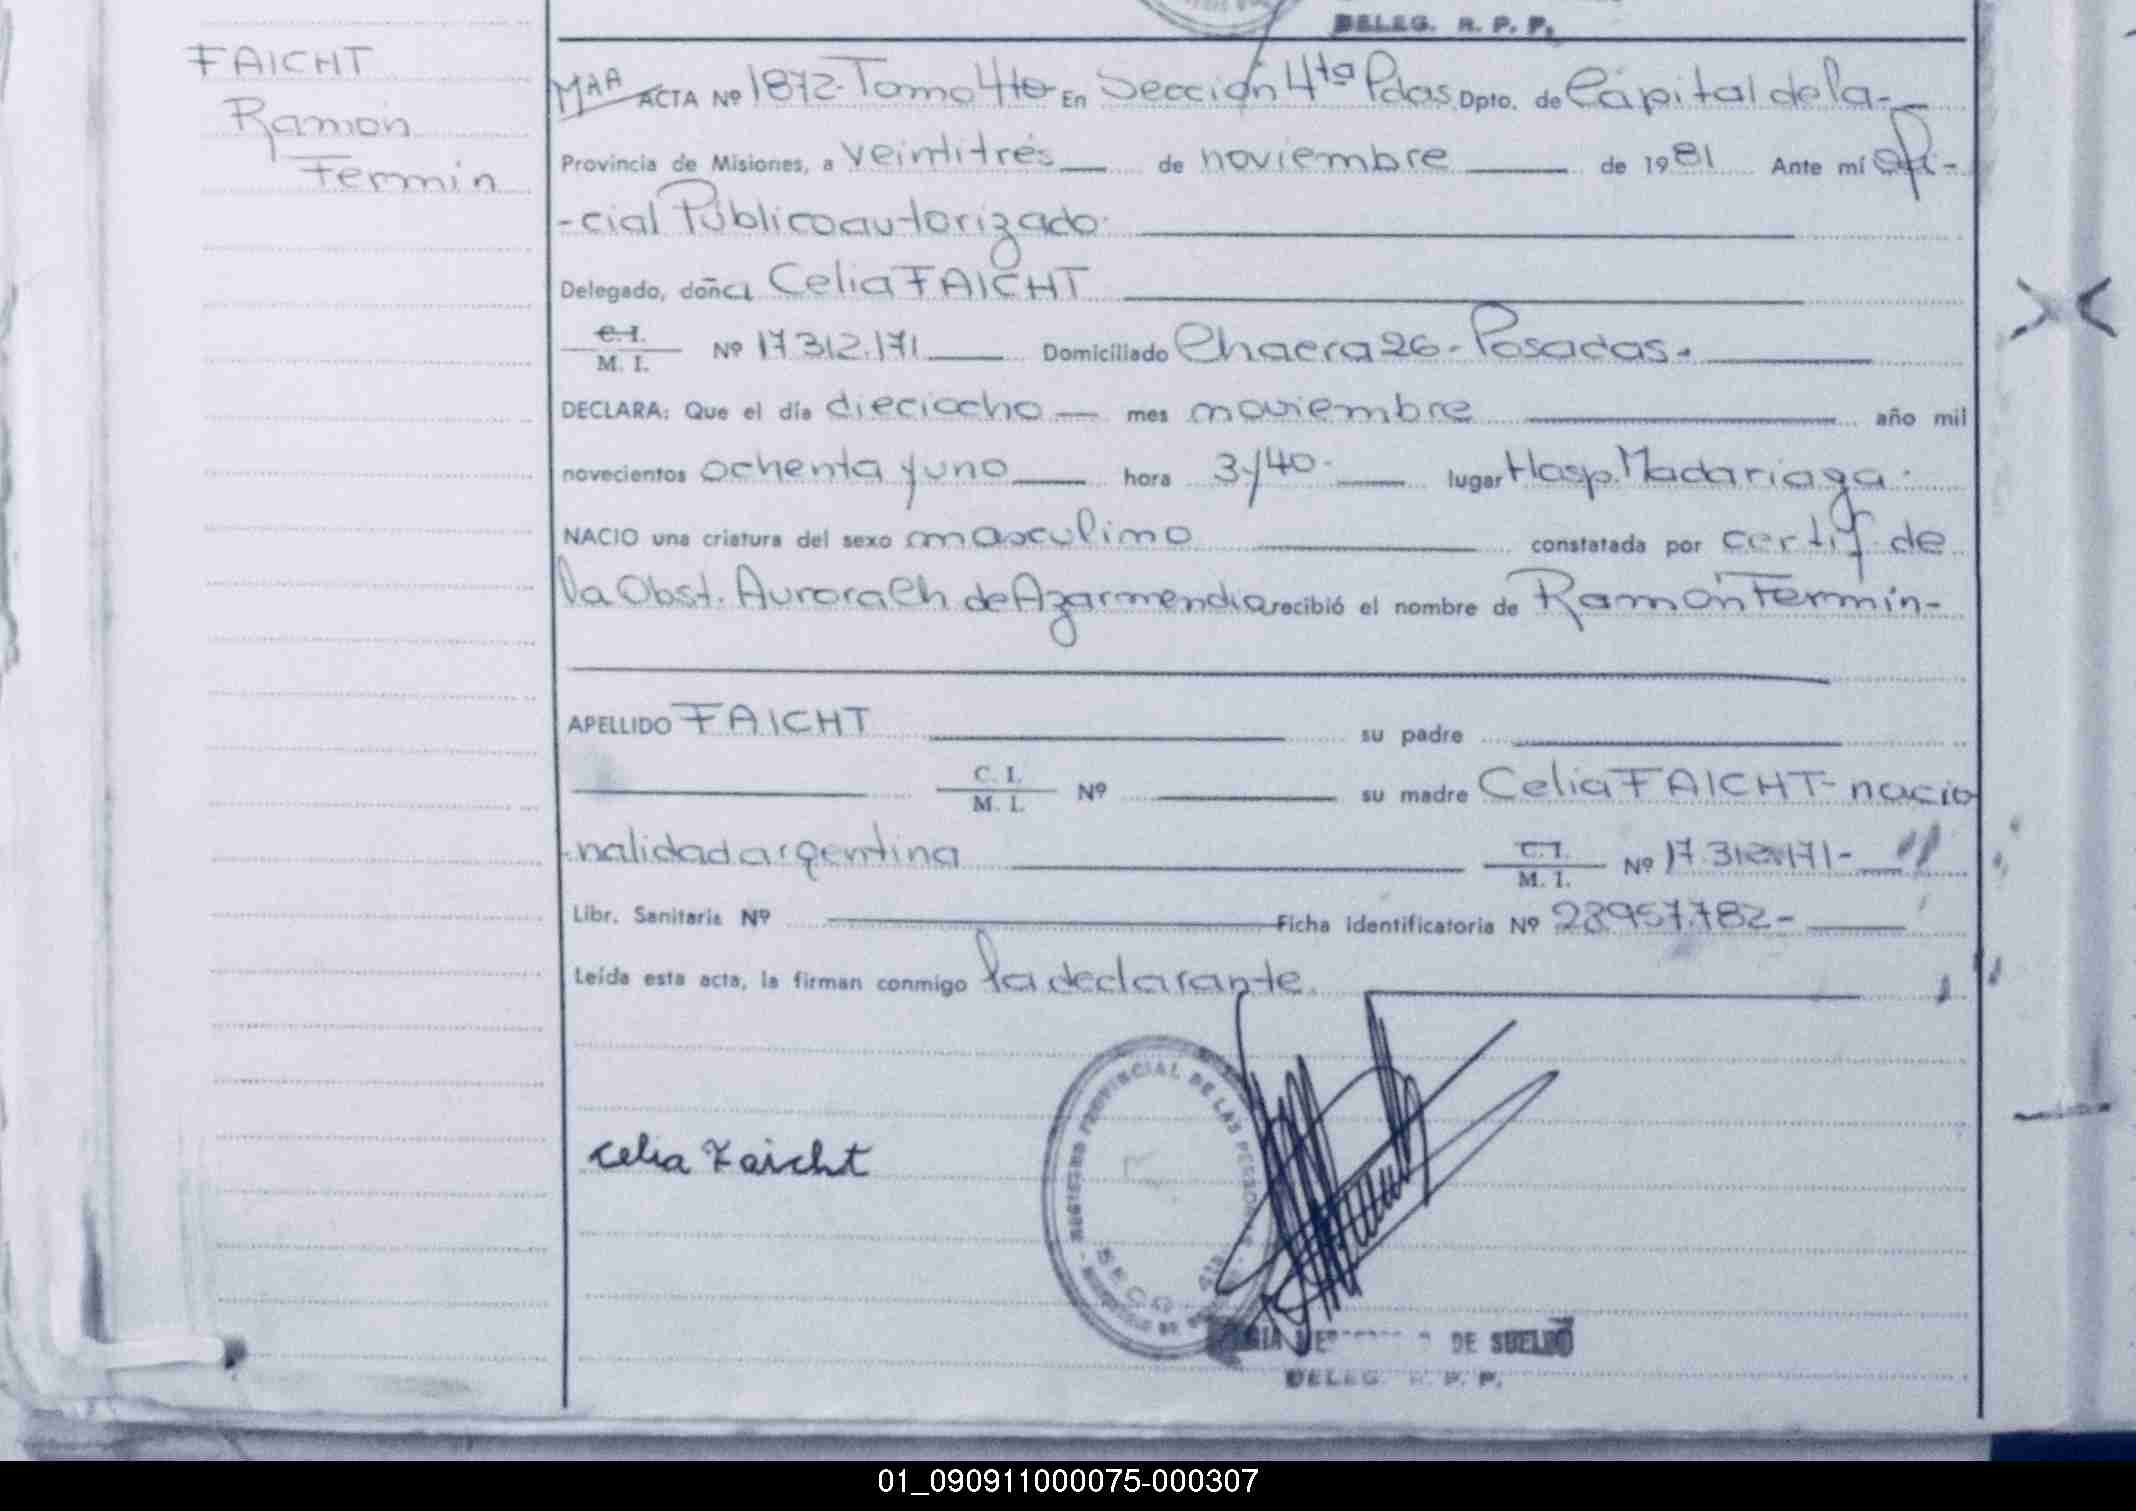 DELEG. R. P. P.
FAICHT
Ramón
Fermin
MAA ACTA Nº 1872-Tomo 4to En Sección 4ta Pdas. Dpto. de Capital de la-
Provincia de Misiones, a veintitrés de noviembre de 1981 Ante mí Ofi-
-cial Público autorizado.
Delegado, doña Celia FAICHT
C.I.
M. I. Nº 17312.171 Domiciliado Chacra 26-Posadas.
DECLARA: Que el día dieciocho mes noviembre año mil
novecientos ochenta y uno hora 3y40. lugar Hosp. Madariaga.
NACIO una criatura del sexo masculino constatada por certif. de
la Obst. Aurora Ch de Azarmendia recibió el nombre de Ramón Fermin-
APELLIDO FAICHT su padre
C. I.
M. I. Nº su madre Celia FAICHT- nacio
-nalidad argentina C.I.
M. I. Nº 17.312.171-
Libr. Sanitaria Nº Ficha identificatoria Nº 28957.782-
Leída esta acta, la firman conmigo la declarante.
Celia Faicht
REGISTRO PROVINCIAL DE LAS PERSONAS
SECC. 4ta
DE SUELDO
DELEG. R. P. P.
01_090911000075-000307